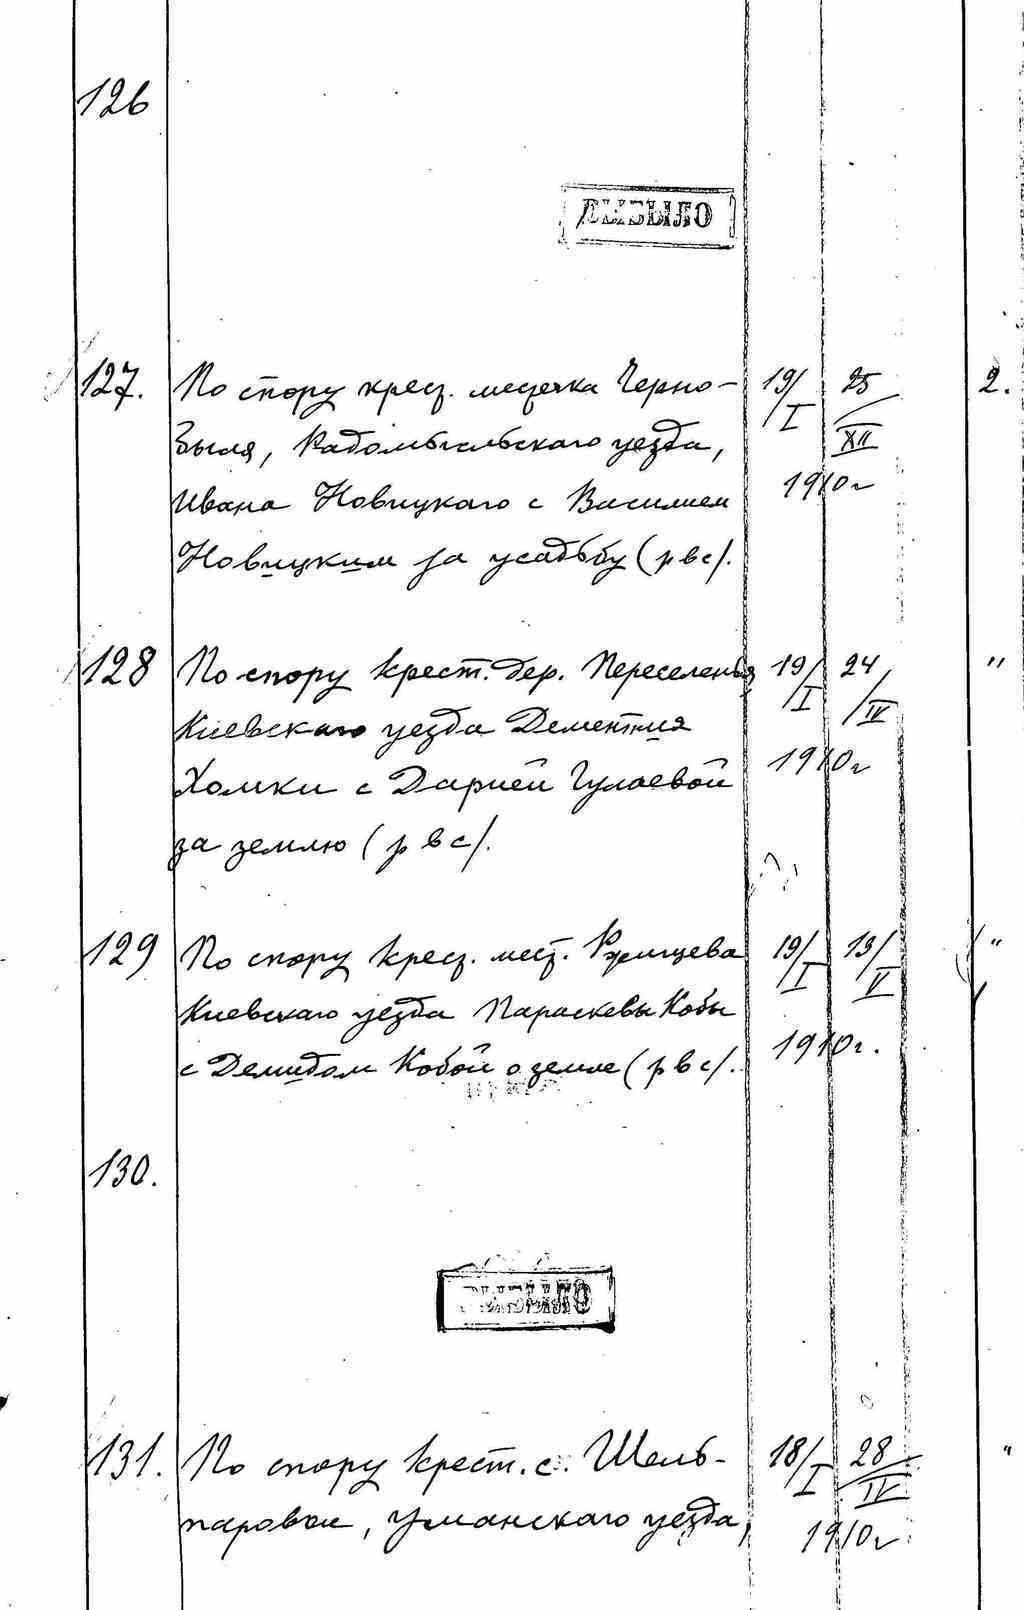 126
ВЫБЫЛО
127. По спору крест. местечка Черно- 19/I 25/XII 2.
быля, Радомысльскаго уезда, 1910г
Ивана Новицкаго с Василием
Новицким за усадьбу (рвс).
128 По спору крест. дер. Переселенья 19/I 24/IV "
Киевскаго уезда Дементия 1910г
Хомки с Дарией Гулаевой
за землю (рвс).
129 По спору крест. мест. Ржищева 19/I 13/V "
Киевскаго уезда Параскевы Кобы
с Демидом Кобой о земле (рвс). 1910г.
130.
ВЫБЫЛО
131. По спору крест. с. Шель- 18/I 28/IV "
паровки, Уманскаго уезда, 1910г